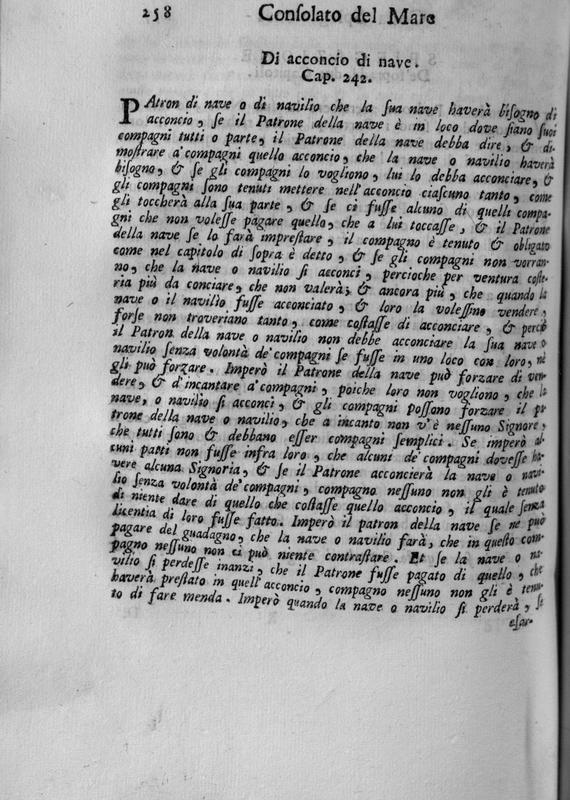 258 Conſolato del Mare
Di acconcio di nave.
Cap. 242.
PAtron di nave o di navilio che la ſua nave haverà biſogno di
acconcio, ſe il Patrone della nave è in loco dove ſiano ſuoi
compagni tutti o parte, il Patrone della nave debba dire, & di-
moſtrare a' compagni quello acconcio, che la nave o navilio haverà
biſogno, & ſe gli compagni lo vogliono, lui lo debba acconciare, &
gli compagni ſono tenuti mettere nell'acconcio ciaſcuno tanto, come
gli toccherà alla ſua parte, & ſe ci fuſſe alcuno di quelli compa-
gni che non voleſſe pagare quello, che a lui toccaſſe, & il Patrone
della nave ſe lo farà impreſtare, il compagno è tenuto & obligato
come nel capitolo di ſopra è detto, & ſe gli compagni non vorran-
no, che la nave o navilio ſi acconci, percioche per ventura coſte-
ria più da conciare, che non valerà; & ancora più, che quando la
nave o il navilio fuſſe acconciato, & loro la voleſſino vendere,
forſe non troveriano tanto, come coſtaſſe di acconciare, & perciò
il Patron della nave o navilio non debbe acconciare la ſua nave o
navilio ſenza volontà de' compagni ſe fuſſe in uno loco con loro, nè
gli può forzare. Imperò il Patrone della nave può forzare di ven-
dere, & d'incantare a' compagni, poiche loro non vogliono, che la
nave, o navilio ſi acconci, & gli compagni poſſono forzare il pa-
trone della nave o navilio, che a incanto non v'è neſſuno Signore,
che tutti ſono & debbano eſſer compagni ſemplici. Se imperò al-
cuni patti non fuſſe infra loro, che alcuni de' compagni doveſſe ha-
vere alcuna Signoria, & ſe il Patrone acconcierà la nave o navi-
lio ſenza volontà de' compagni, compagno neſſuno non gli è tenuto
di niente dare di quello che coſtaſſe quello acconcio, il quale ſenza
licentia di loro fuſſe fatto. Imperò il patron della nave ſe ne può
pagare del guadagno, che la nave o navilio farà, che in queſto com-
pagno neſſuno non ci può niente contraſtare. Et ſe la nave o na-
vilio ſi perdeſſe inanzi, che il Patrone fuſſe pagato di quello, che
haverà preſtato in quell'acconcio, compagno neſſuno non gli è tenu-
to di fare menda. Imperò quando la nave o navilio ſi perderà, ſe
eſar-